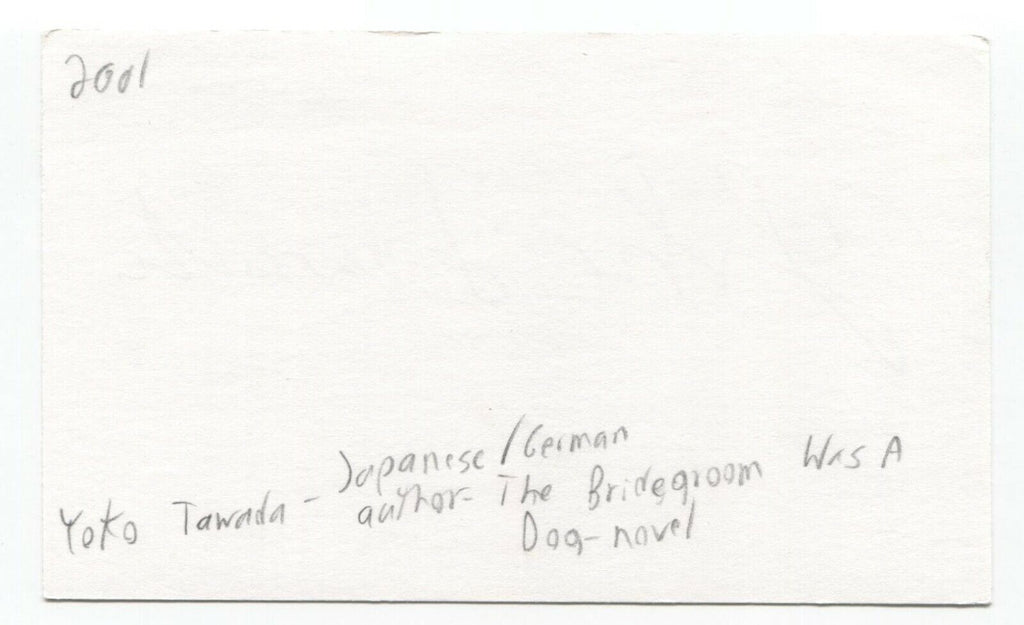 2001
Japanese/German
Yoko Tawada - author - The Bridegroom Was A
Dog - novel